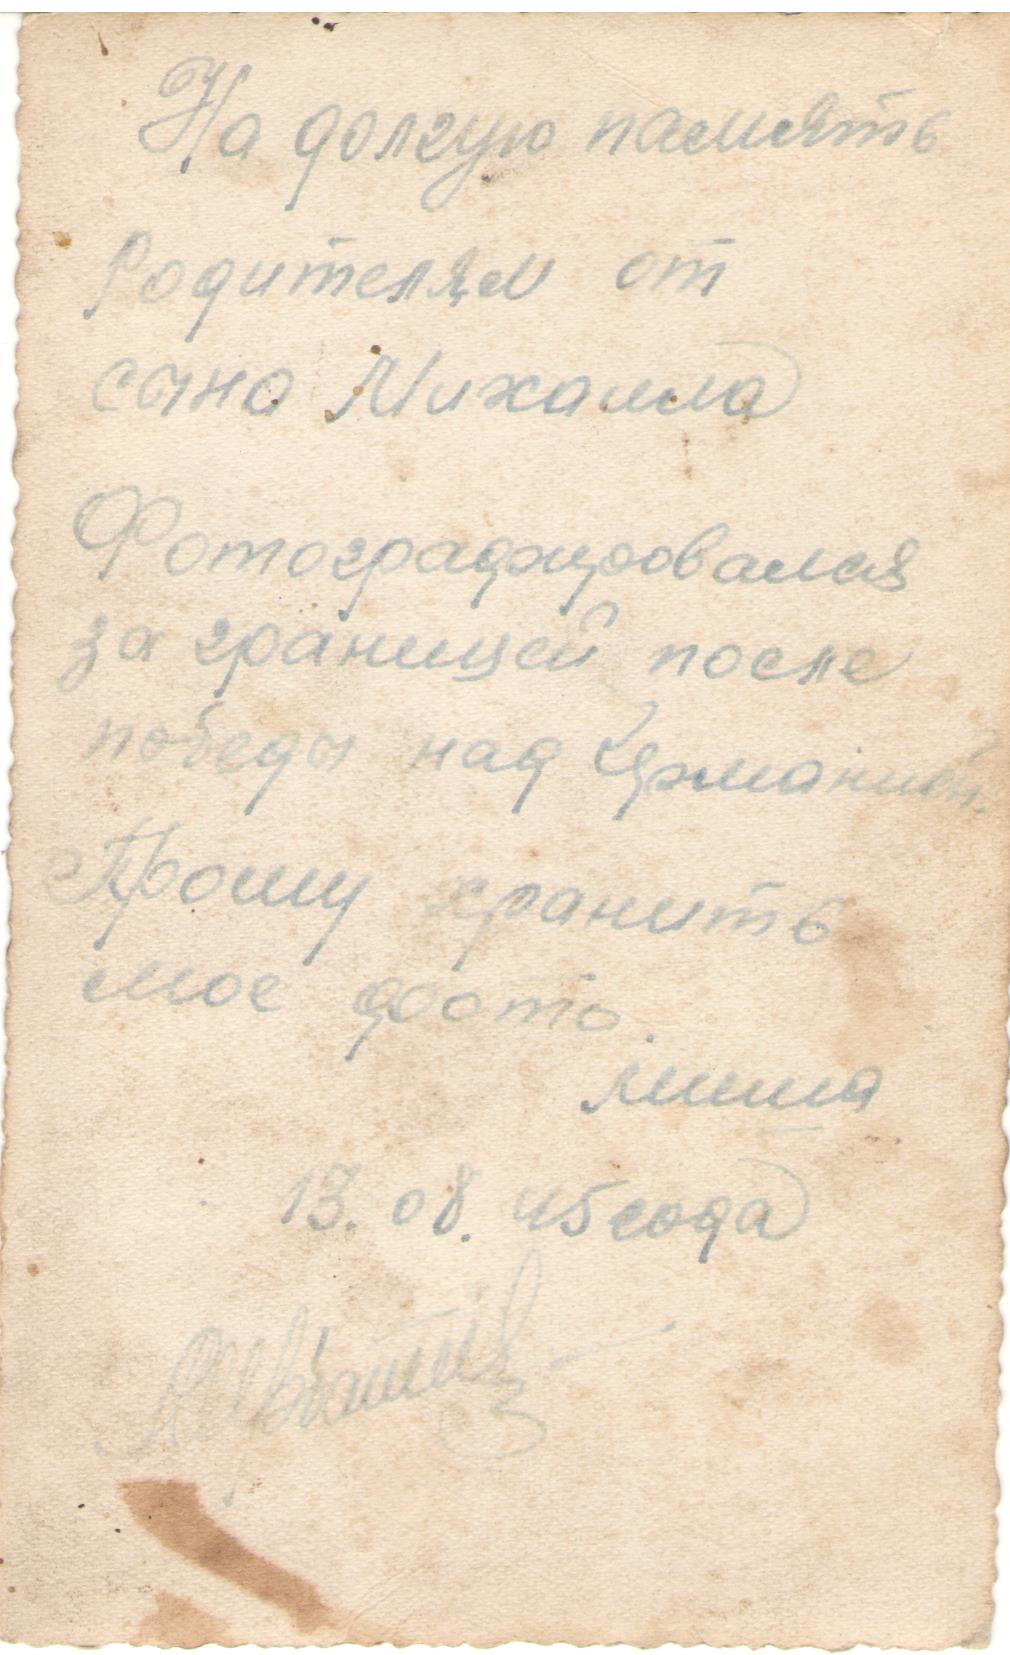 На долгую память
Родителям от
сына Михаила
Фотографировался
за границей после
победы над Германией.
Прошу хранить
мое фото.
Миша
13. 08. 45 года